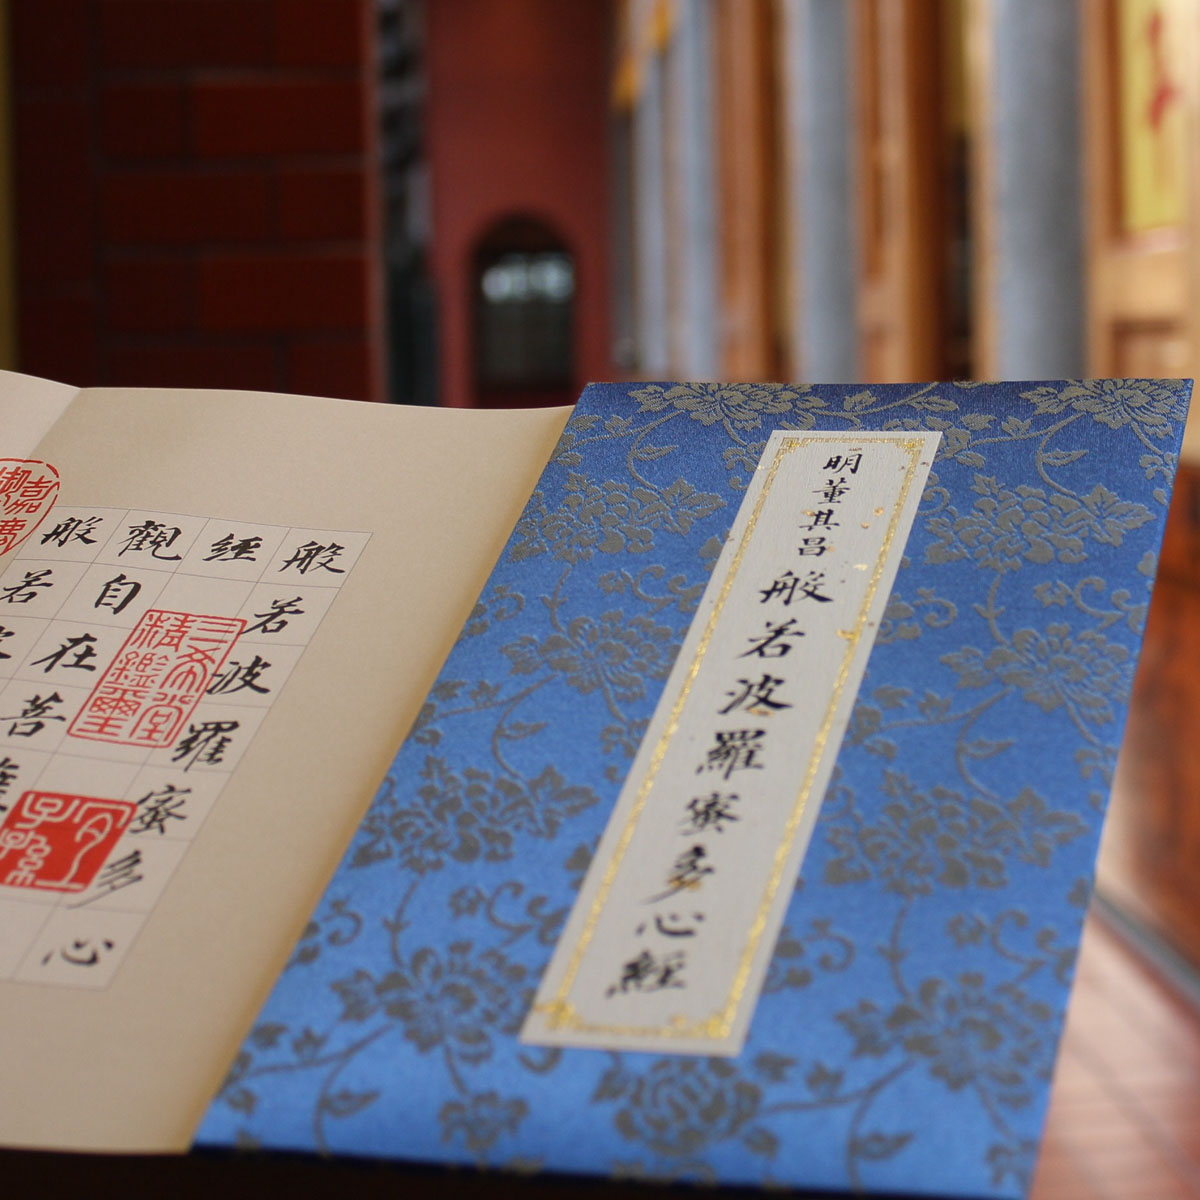 明董其昌般若波羅蜜多心經
般若波羅蜜多心
經
觀自在菩
般若
三希堂
精鑑璽
宜子孫